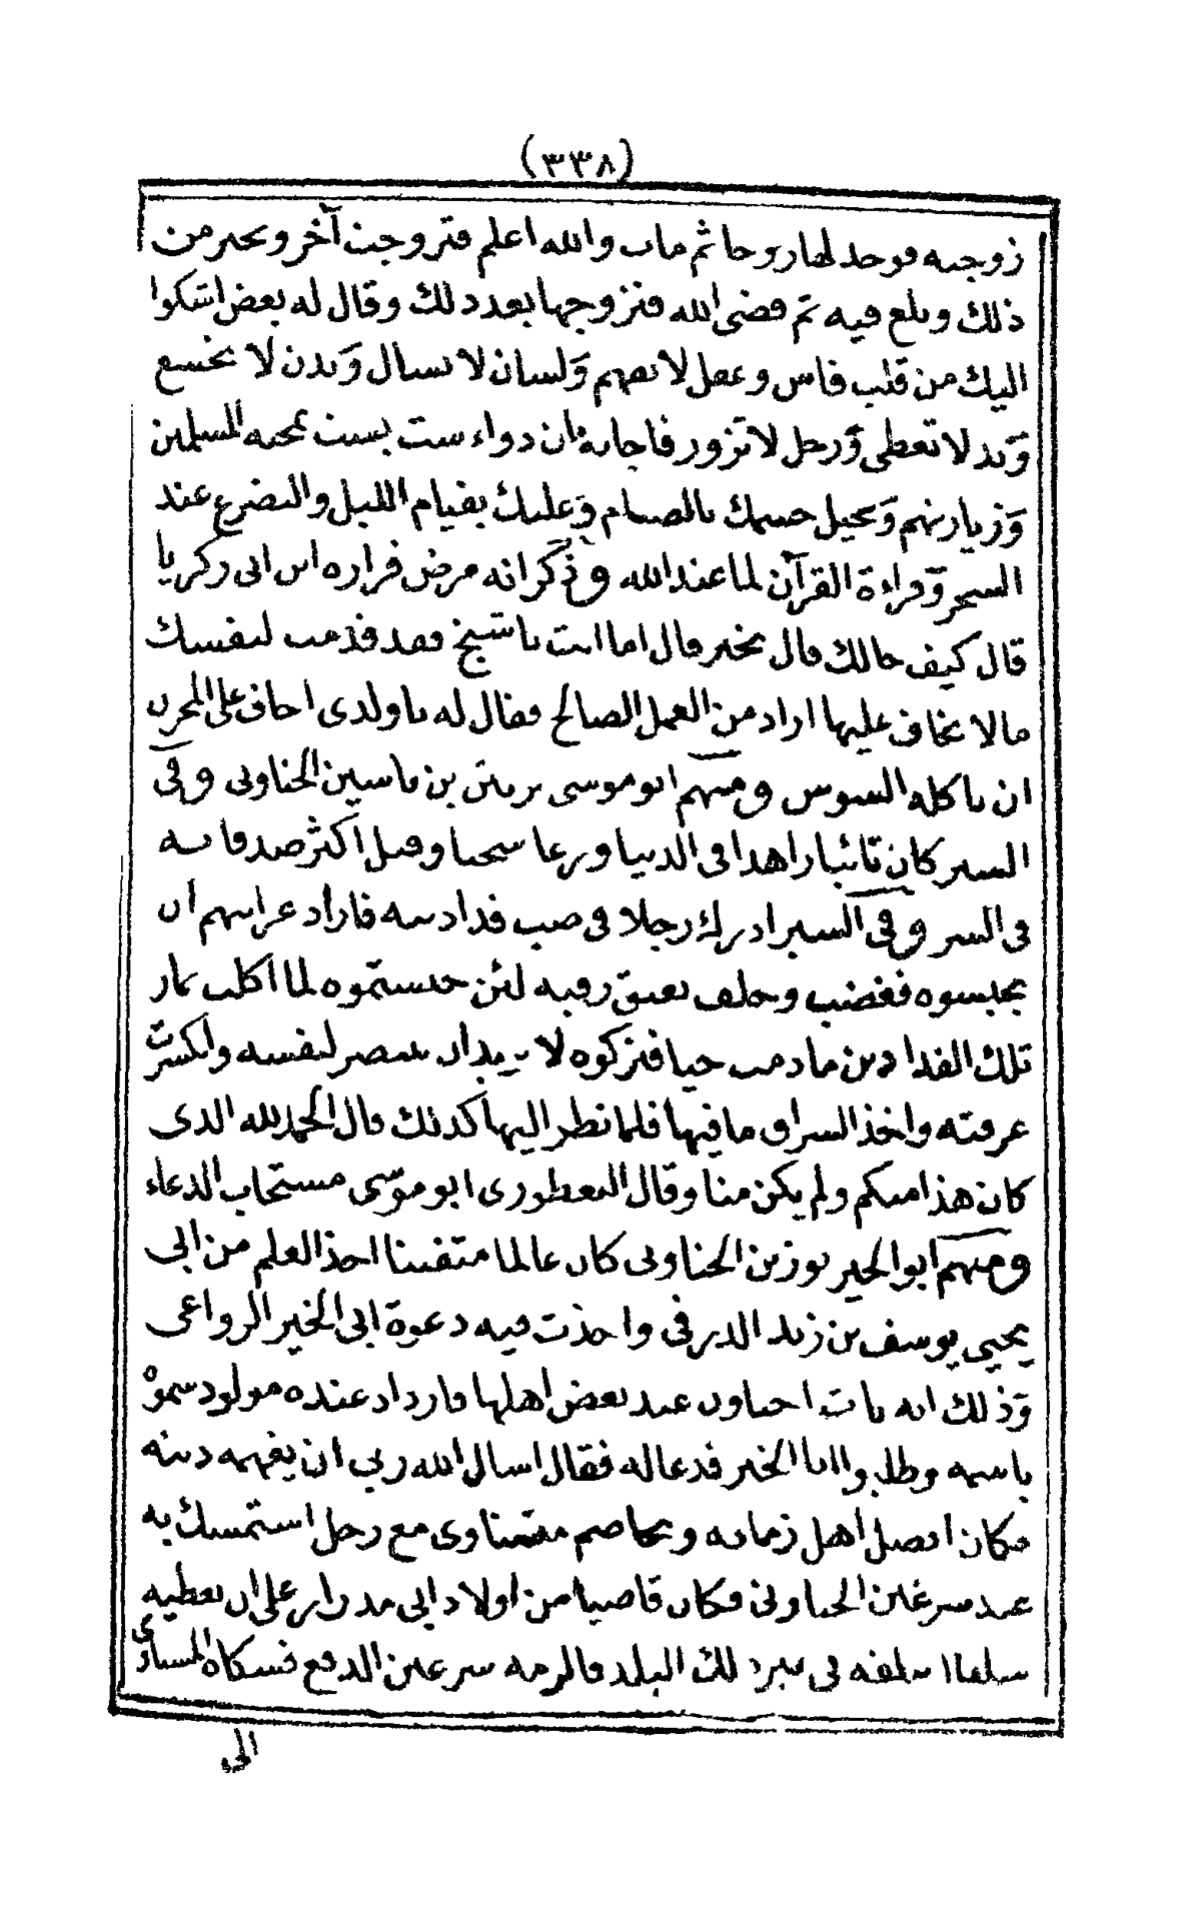 (٣٣٨)
زوجته فوجد لها روحا ثم مات والله اعلم فتزوجت آخر وتحير من
ذلك وبلغ فيه ثم قضى الله فتزوجها بعد ذلك وقال له بعض اشكوا
اليك من قلب قاس وعقل لا يفهم ولسان لا يسال وبدن لا يخشع
ويد لا تعطى ورجل لا تزور فاجابه ان دواء ست بست بمحبة المسلمين
وزيارتهم وتحيل جسمك بالصيام وعليك بقيام الليل والتضرع عند
السحر وقراءة القرآن لما عند الله وذكر انه مرض فزاره ابن ابى زكريا
قال كيف حالك قال بخير قال اما انت يا شيخ فقد قدمت لنفسك
ما لا يخاف عليها اراد من العمل الصالح فقال له يا ولدى اخاف على المخزن
ان ياكله السوس ومنهم ابو موسى يزيتن بن ياسين الجناونى وفى
السير كان تائبا زاهدا فى الدنيا ورعا سخيا وقيل اكثر صدقاته
فى السر وفى السير ادرك رجلا فى صيب قد ادينه فاراد عزابهم ان
يحبسوه فغضب وحلف بعتق رقبة لئن حبستموه لما اكلت ثمار
تلك الفدادين ما دمت حيا فتركوه لا يريد ان ينتصر لنفسه وانكسرت
غرفته واخذ السراق ما فيها فلما نظر اليها كذلك قال الحمد لله الذى
كان هذا منكم ولم يكن منا وقال البغطورى ابو موسى مستجاب الدعاء
ومنهم ابو الخير توزين الجناونى كان عالما متفننا اخذ العلم من ابى
يحيى يوسف بن زيد الدرفى واخذت فيه دعوة ابى الخير الزواغى
وذلك انه بات اجناون عند بعض اهلها فازداد عنده مولود سموه
باسمه وطلبوا ابا الخير فدعا له فقال اسال الله ربى ان يفهمه دينه
فكان افضل اهل زمانه وتخاصم مع رجل استمسك به
عند سرغين الجناونى فكان قاضيا من اولاد ابى مدرار على ان يعطيه
سلفا سلفه فى ذلك البلد فالزمه سرغين الدفع فشكاه
الى